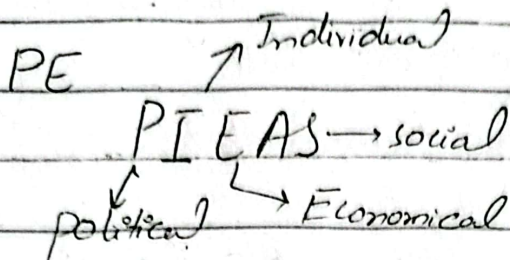 Individual
PE
PIEAS → social
political
Economical